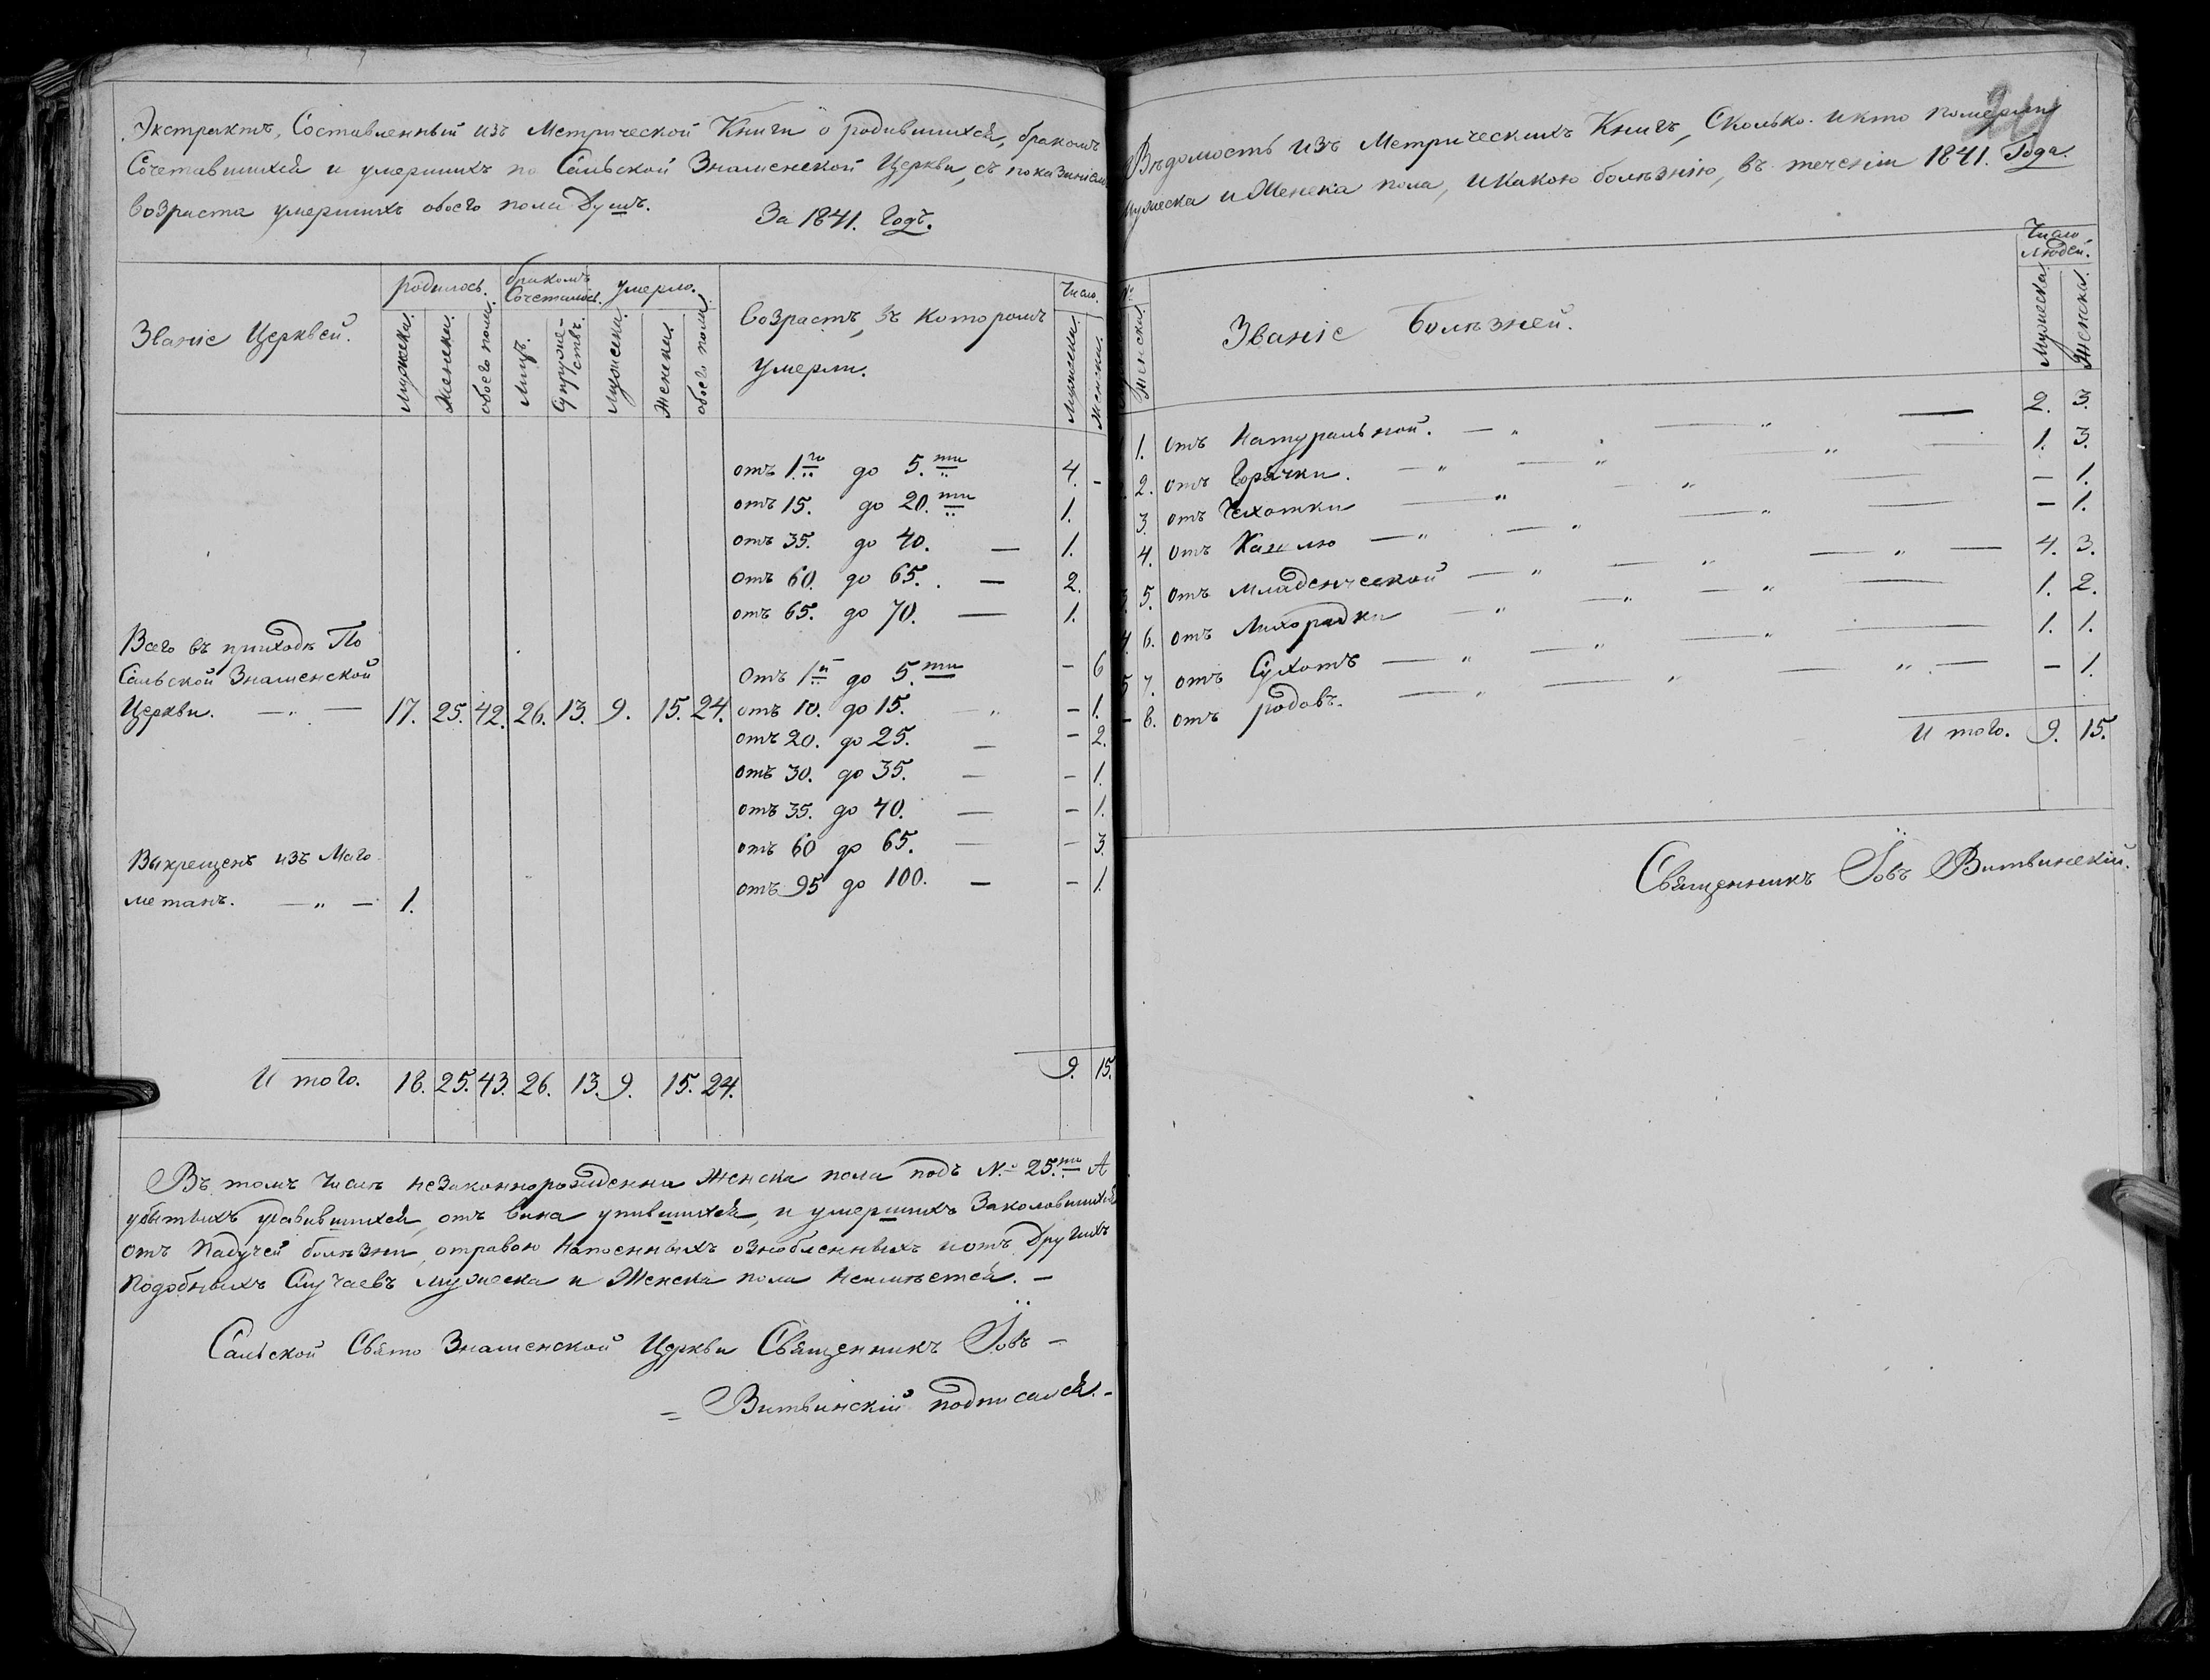 Экстрактъ, Составленный изъ Метрической Книги о родившихся, бракомъ
Сочетавшихся и умершихъ по Сальской Знаменской Церкви, съ показаніемъ
возраста умершихъ обоего пола душъ.
За 1841. Годъ.
Званіе Церквей.
родилось.
бракомъ Сочеталось.
умерло.
Возрастъ, въ которомъ
умерли.
Число.
Мужеска.
Женска.
обоего пола.
Лицъ.
Супружествъ.
Мужеска.
Женска.
обоего пола.
Мужеска.
Женска.
отъ 1.го до 5.ти 4. -
отъ 15. до 20.ти 1.
отъ 35. до 40. — 1.
отъ 60. до 65. — 2.
отъ 65. до 70. — 1.
Всего въ приходѣ По
Сальской Знаменской
Церкви. — „ — 17. 25. 42. 26. 13. 9. 15. 24.
Отъ 1го до 5.ти - 6
отъ 10. до 15. „ - 1.
отъ 20. до 25. — - 2.
отъ 30. до 35. — - 1.
отъ 35. до 40. — - 1.
отъ 60 до 65. — - 3.
отъ 95 до 100. — - 1.
Выкрещенъ изъ Маго
метанъ. — „ — 1.
И того. 18. 25. 43. 26. 13. 9. 15. 24. 9. 15.
Въ томъ числѣ незаконнорожденна женска пола подъ № 25.ти А
убитыхъ удавившихся, отъ вина упившихся, и умершихъ Заколовшихся
отъ Падучей болѣзни, отравою напоенныхъ ознобленныхъ и отъ Другихъ
подобныхъ Случаевъ мужеска и Женска пола неимѣется. —
Сальской Свято Знаменской Церкви Священникъ Іовъ —
= Витвинскій подписался. -
24
Вѣдомость изъ Метрическихъ Книгъ, Сколько и кто померли
мужеска и Женска пола, и какою болѣзнію, въ теченіи 1841. Года.
№
Женска.
Званіе Болѣзней.
Число Людей.
Мужеска.
Женска.
1. отъ Натуральной. — „ — „ — 2. 3.
2. отъ Горячки. — „ — „ — „ — 1. 3.
3. отъ Чахотки — „ — „ — - 1.
4. отъ Кашлю — „ — „ — „ - 1.
5. отъ Младенческой — „ — „ — „ — 4. 3.
6. отъ Лихорадки — „ — „ — „ — 1. 2.
7. отъ Сухотъ — „ — „ — „ — 1. 1.
8. отъ родовъ. — „ — „ — „ — - 1.
И того. 9. 15.
Священникъ Іовъ Витвинскій.